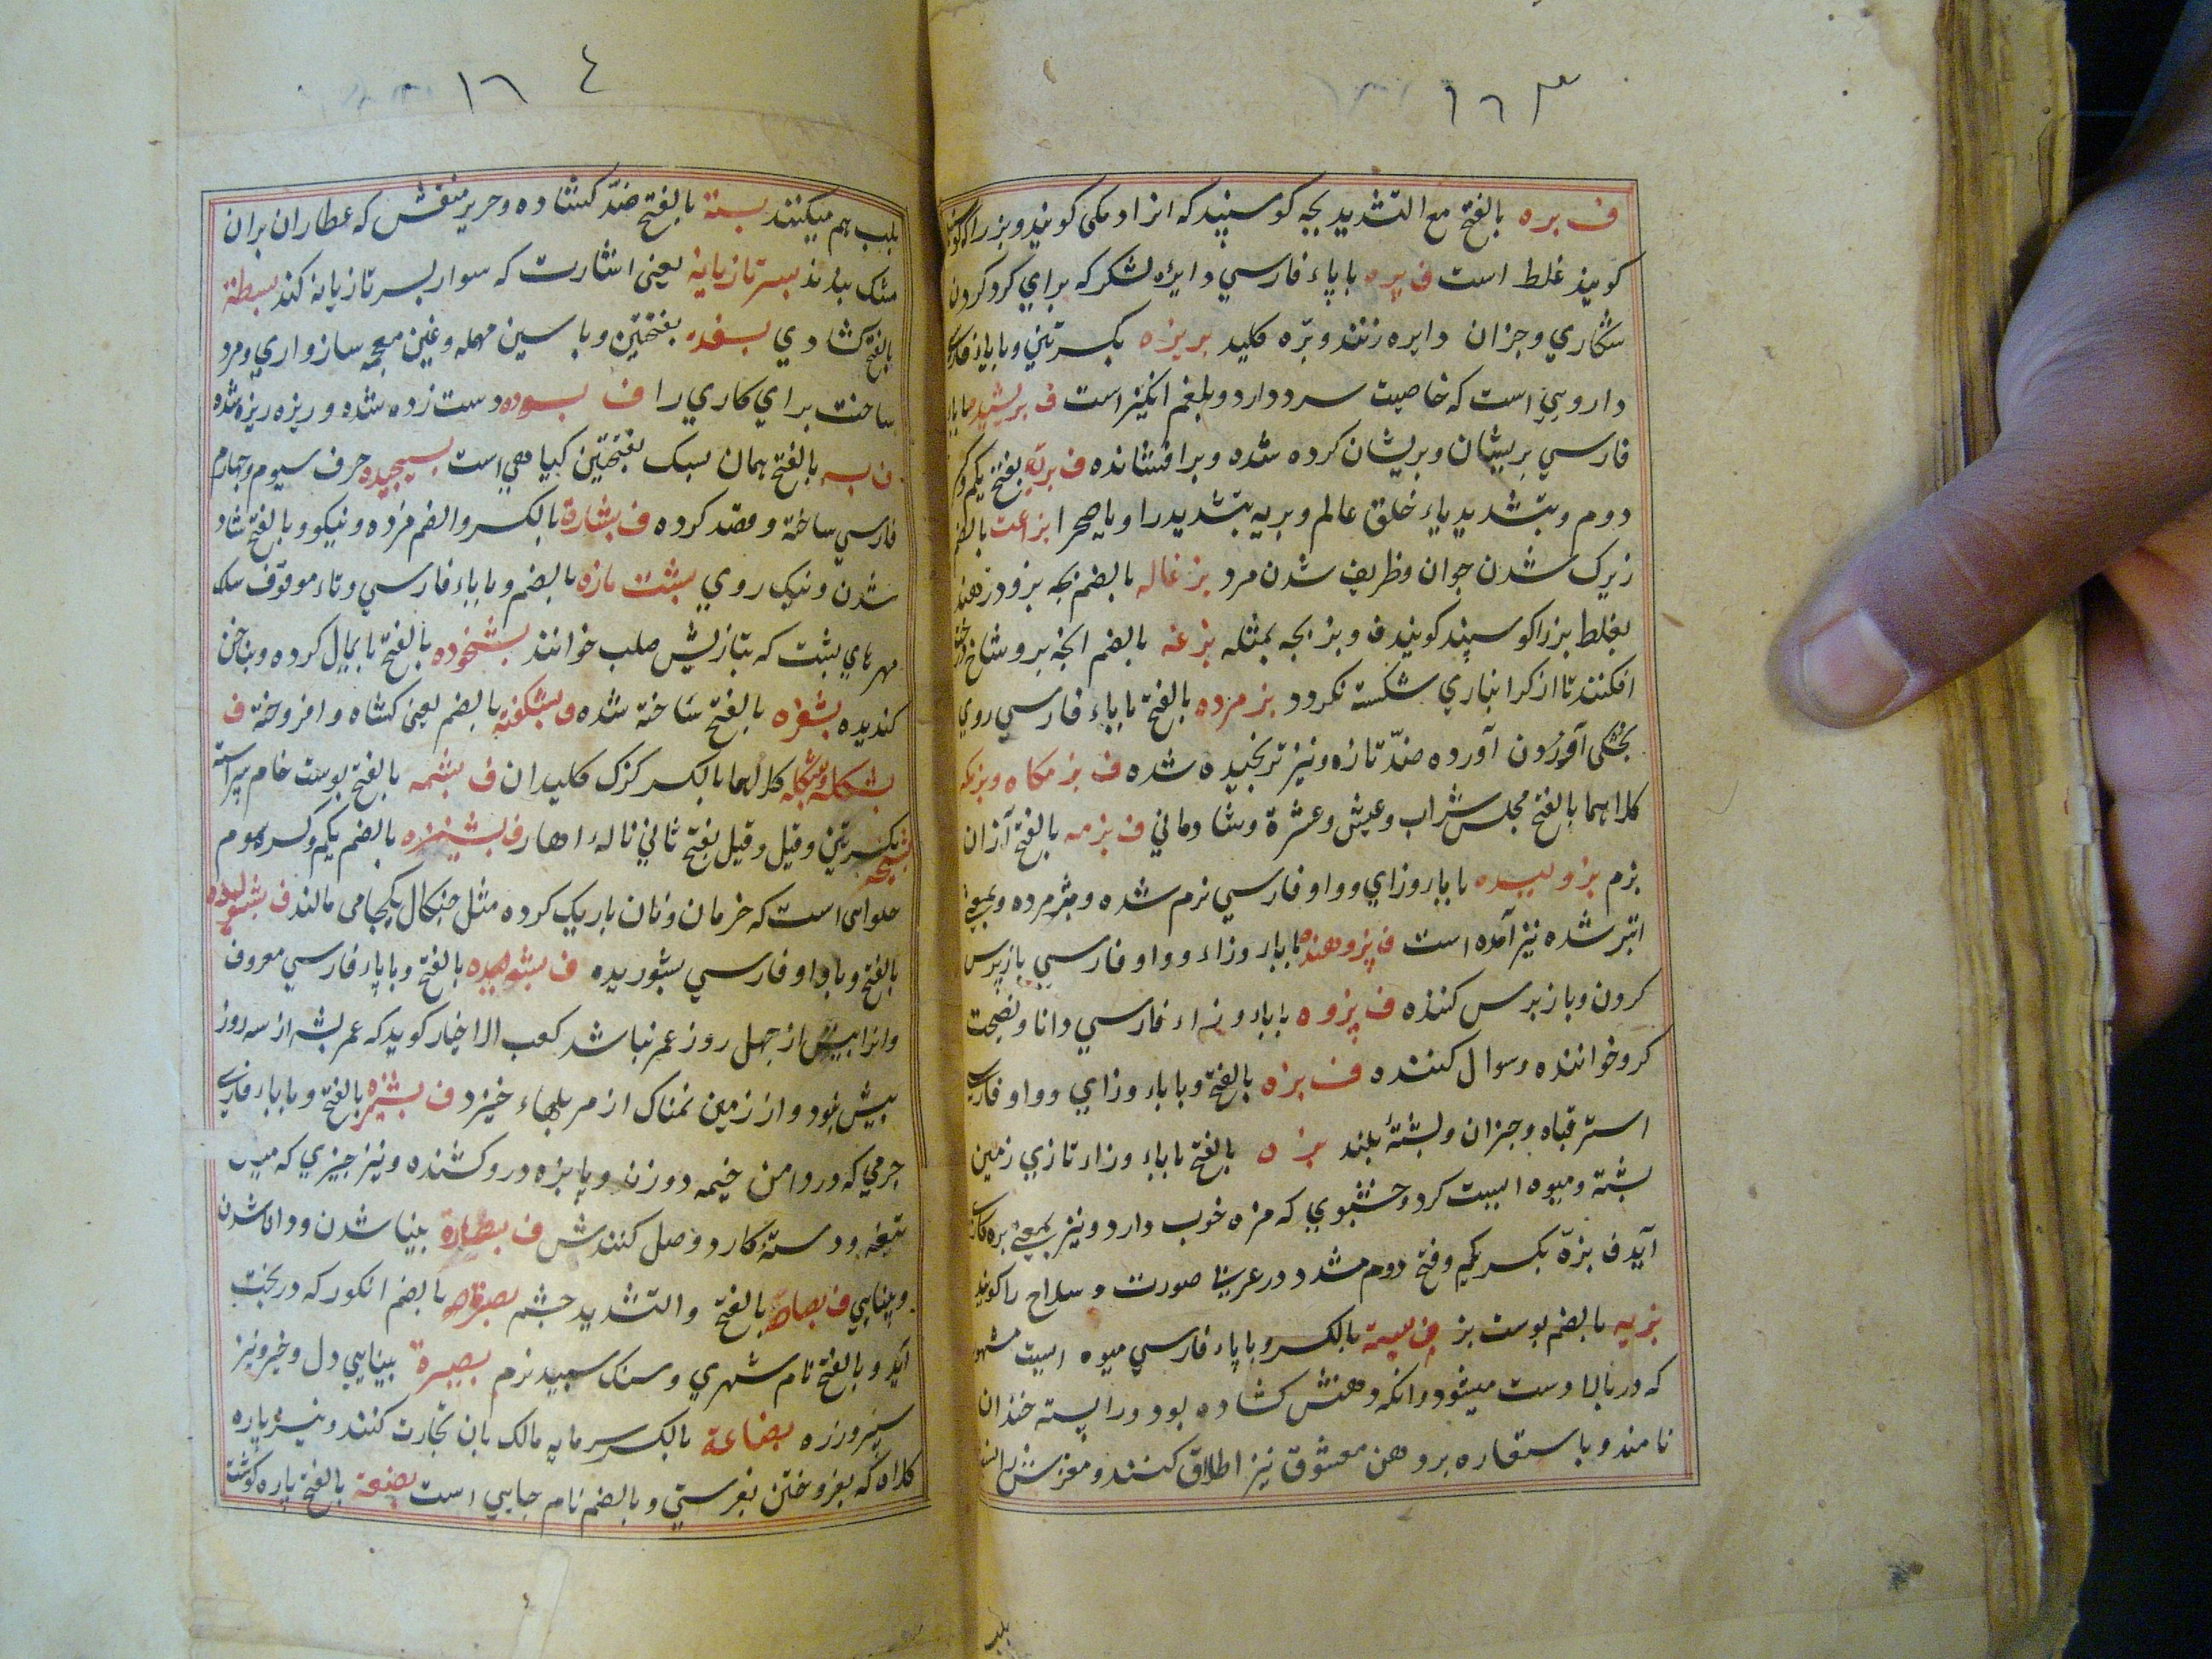 ١٦٣
ف بره بالفتح مع التشدید بجه کوسپند که انرا دمکی کویند و بز را کوسفند
کویند غلط است ف پره باپاء فارسي دایره لشکر که براي کرد کردن
شکاري و جزان دایره زنند و بره کلید بریزه بکسرتین و بابای فارسي
داروىي است که خاصیت سرد دارد و بلغم انکیز است ف بریشیده بابای
فارسي بریشان و بریشان کرده شده و برافشانده ف بریّه بفتح یکم وکسر
دوم و بتشدید یاء خلق عالم و بریه بتشدید را و یا صحرا بزاعت بالضم
زیرک شدن جوان و ظریف شدن مرد بزغاله بالضم بجه بز و در هند
بغلط بز را کوسپند کویند ف و بز بجه بمثله بزغه بالضم انجه بر و شاخ درخت
افکنند تا از کرانباري شکسته نکردد بزمرده بالفتح باباء فارسي روي
بخشکی آوردن آورده ضدّ تازه و نیز ترنجیده شده ف بزمکاه و بزمکه
کلاهما بالفتح مجلس شراب و عیش و عشرة و شادماني ف بزمه بالفتح آزان
بزم بزولیده بابا و زاي و واو فارسي نرم شده و پژمرده و بمعني
ابتر شده نیز آمده است ف پزوهنده بابا و زاء و واو فارسي بازپرس
کردن و باز پرس کننده ف پزوه باباء و زاء فارسي دانا و نصیحت
کر و خواننده و سوال کننده ف بزه بالفتح و باباء و زاي و واو فارسي
استر قباه و جزان و پشتهٔ بلند بزه بالفتح باباء و زاء تازي زمین
پشته و میوه ایست کرد و خشبوي که مزه خوب دارد و نیز بمعني بره کاري
آید ف بزّة بکسر یکم و فتح دوم مشدد در عربي صورت و سلاح را کویند
بزیه بالضم پوست بز ف پسته بالکسر و باپاء فارسي میوه ایست مشهور
که در بالا دست میشود و انکه دهنش کشاده بود ورا پسته خندان
نامند و باستعاره بر دهن معشوق نیز اطلاق کنند و مغزش را
بلب
١٦٤
بلب هم میکنند بسته بالفتح ضدّ کشاده و حریر منقش که عطاران بران
مشک بیزند بسر تازیانه یعنی اشارت که سوار بسر تازیانه کند بسطة
بالفتح کشادي بسغده بفتحتین و باسین مهمله و غین معجمه سازواري و مرد
ساخت براي کاري را ف بسوده دست زده شده و ریزه ریزه شده
ف بسه بالفتح همان بسک بفتحتین کیاهي است بسیجیده حرف سیوم و جهارم
فارسي ساخته و قصد کرده ف بشارة بالکسر و الضم مزده و نیکوو و بالفتح شاد
شدن و نیک روي پشت مازه بالضم و باباء فارسي و تاء موقوف سلک
مهرهاي پشت که بتازیش صلب خوانند بشخوده بالفتح پایمال کرده و بناخن
کندیده بشغزه بالفتح ساخته شده و بشکفته بالضم یعنی کشاه و افروخته ف
بشکله و بشکله کلاهما بالکسر کژک کلیدان ف پشمه بالفتح پوست خام پیراسته
بکسرتین و قیل و قیل بفتح ثاني ناله اهار ف بشنیزه بالضم یکم و کسر سوم
حلوا‌یی است که خرمان و نان باریک کرده مثل جنکال یکجا می مالند ف بشولیده
بالفتح و باواو فارسي بشوریده ف پشوهیده بالفتح و باپاء فارسي معروف
و انرا بیش از جهل روز عمر نباشد کعب الاخبار کوید که عمر پشه از سه روز
بیش نبود و از زمین نمناک از سر بلهاء خیزد ف بشیزه بالفتح و باباء فارسي
جرمي که در دامن خیمه دوزند و پابزه درو کشنده و نیز جیزي که میان
تیغه و دستهٔ کارد وصل کنندش ف بصارة بینا شدن و دانا شدن
و بینایي ف بصاصة بالفتح و التشدید جشم بصرة بالضم انکور که در پخت
آید و بالفتح نام شهري و سنک سپید نرم بصیرة بینایي دل و خبر و نیز
سپر و زره بضاعة بالکسر سرمایه مالک بان تجارت کنند و نیز پاره
کالاه که بفروختن بفرستي و بالضم نام جایي است بضعة بالفتح پاره کوشت